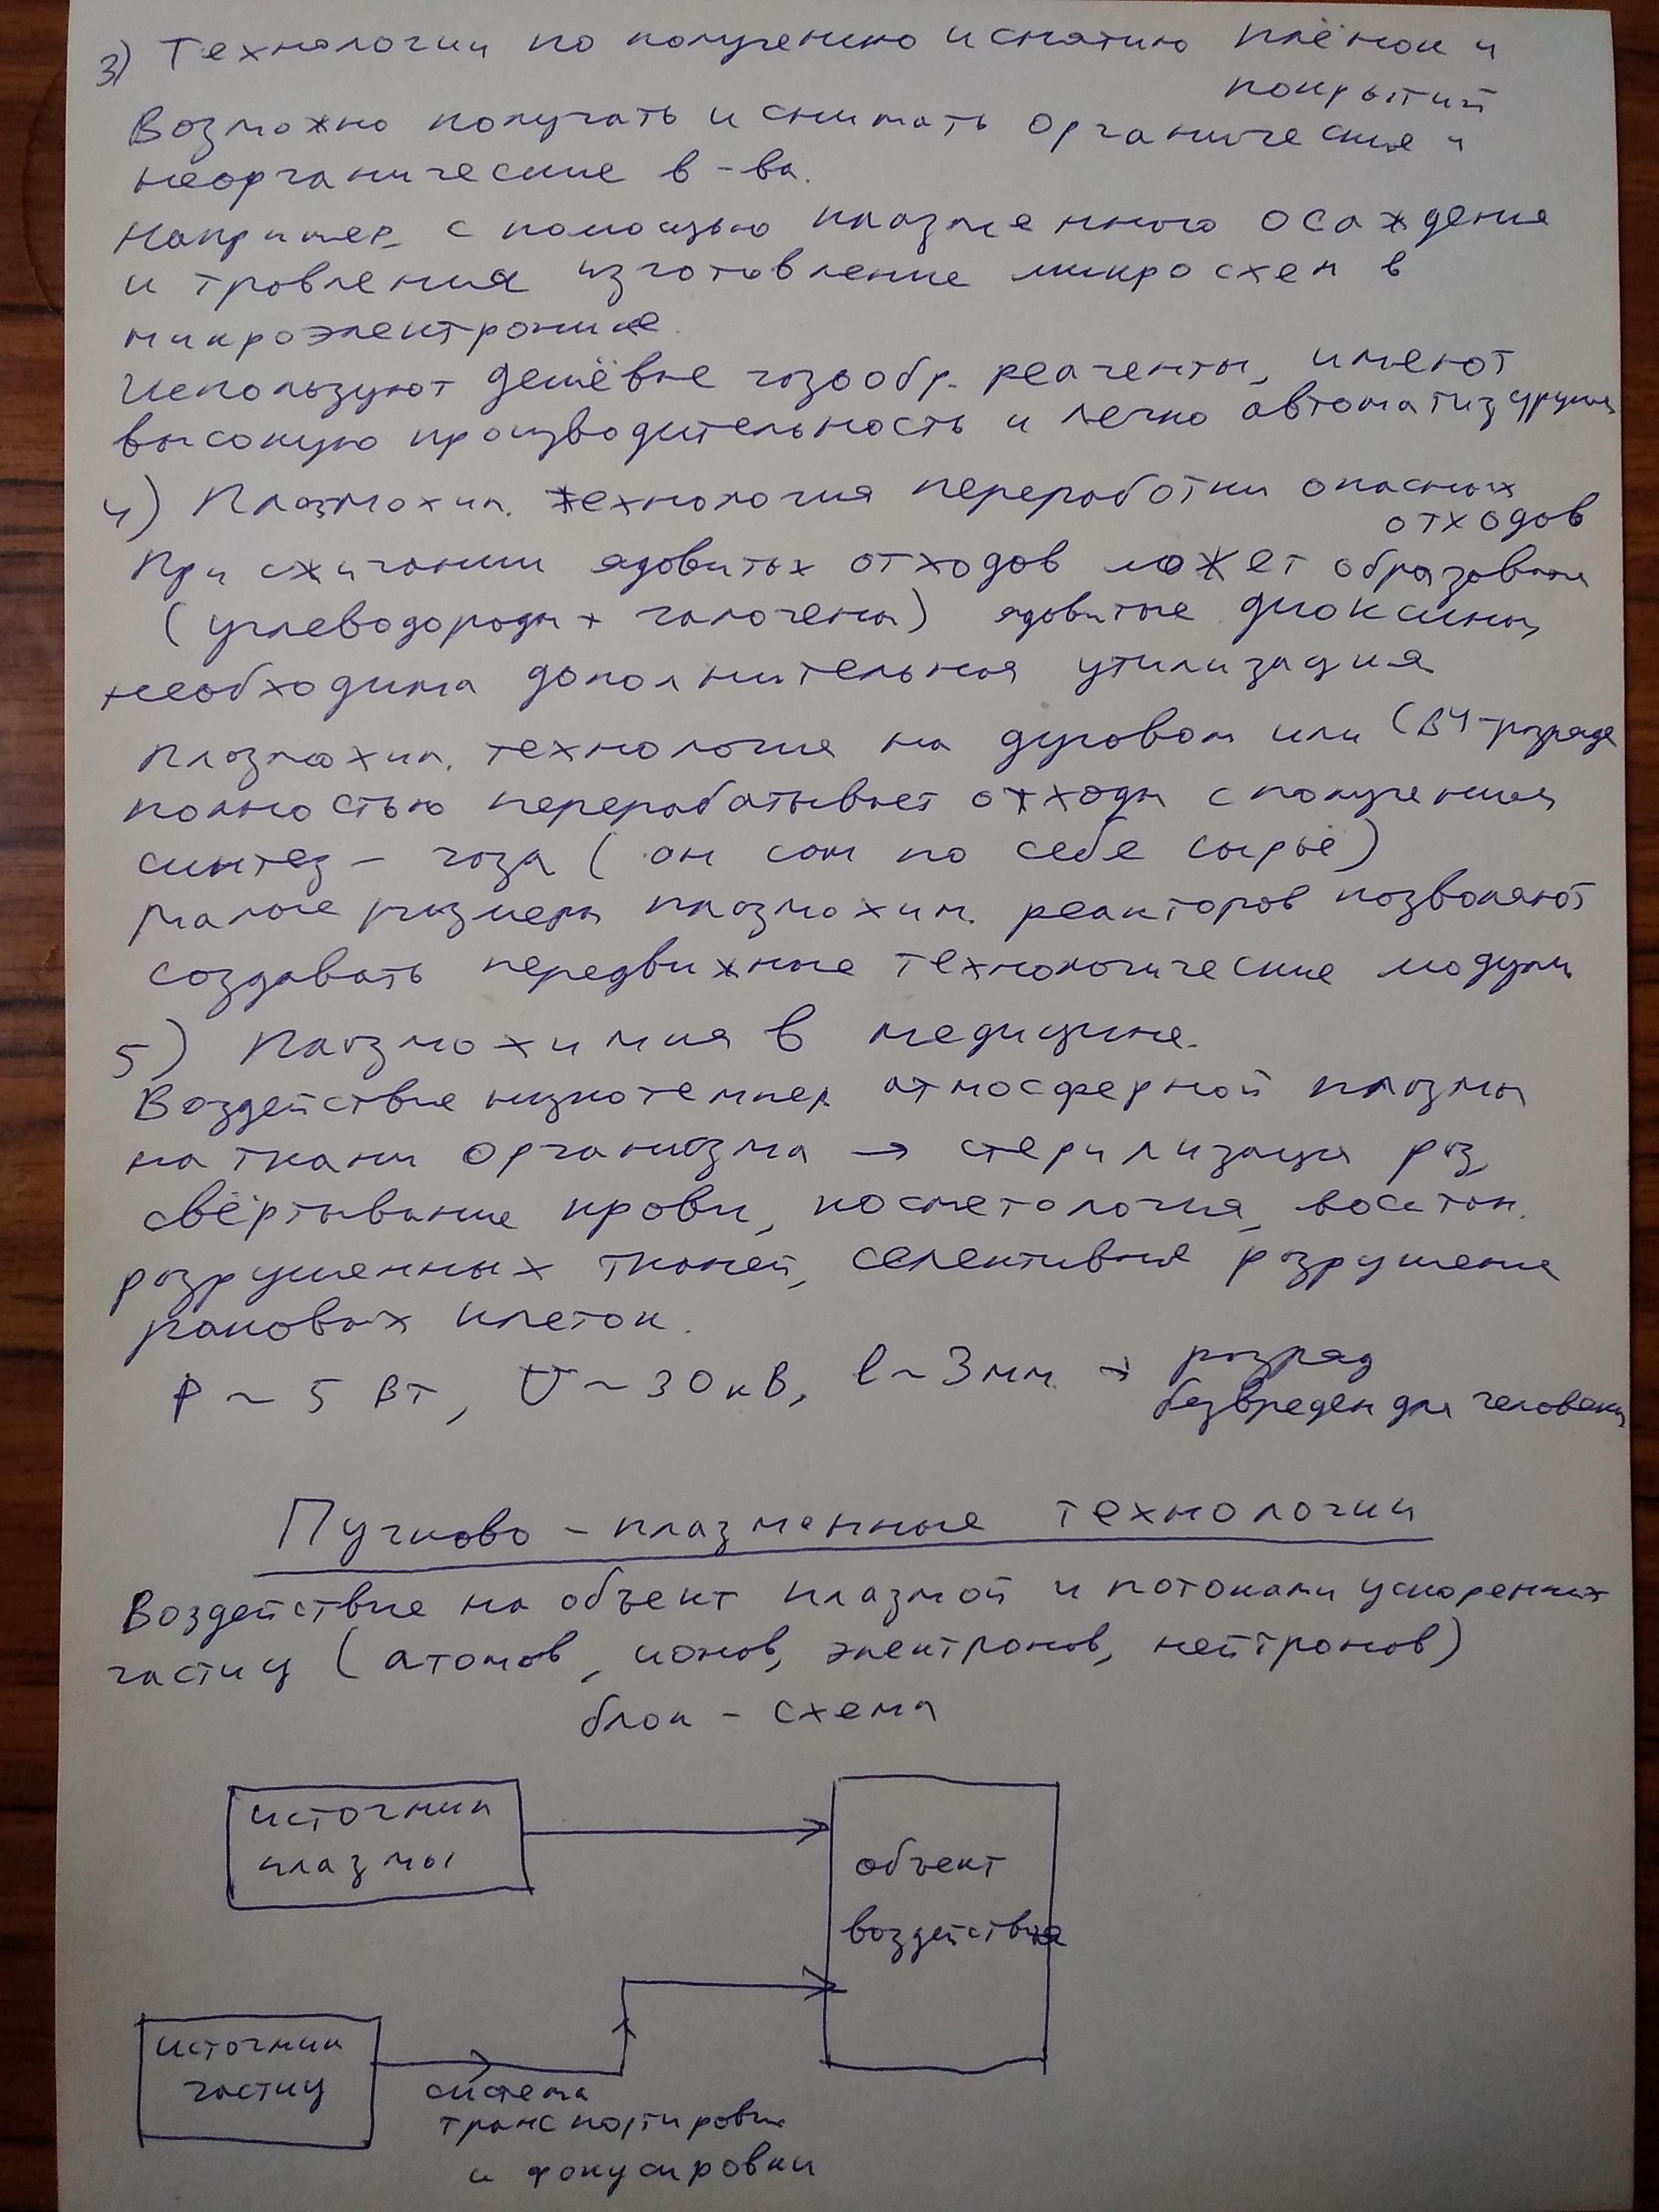 3) Технологии по получению и снятию плёнок и
покрытий
Возможно получать и снимать органические и
неорганические в-ва.
Например с помощью плазменного осаждения
и травления изготовление микросхем в
микроэлектронике.
Используют дешёвые газообр. реагенты, имеют
высокую производительность и легко автоматизируются
4) Плазмохим. технология переработки опасных
отходов
При сжигании ядовитых отходов может образоваться
(углеводороды + галогены) ядовитые диоксины,
необходима дополнительная утилизация
Плазмохим. технология на дуговом или СВЧ-разряде
полностью перерабатывает отходы с получением
синтез-газа (он сам по себе сырьё)
Малые размеры плазмохим. реакторов позволяют
создавать передвижные технологические модули
5) Плазмохимия в медицине.
Воздействие низкотемпер атмосферной плазмы
на ткани организма → стерилизация раз,
свёртывание крови, косметология, восстан.
разрушенных тканей, селективное разрушение
раковых клеток.
P ~ 5 Вт, U ~ 30 кВ, l ~ 3 мм → разряд
безвреден для человека
Пучково-плазменные технологии
Воздействие на объект плазмой и потоками ускоренных
частиц (атомов, ионов, электронов, нейтронов)
блок-схема
источник
плазмы
объект
воздействия
источник
частиц
система
транспортировки
и фокусировки